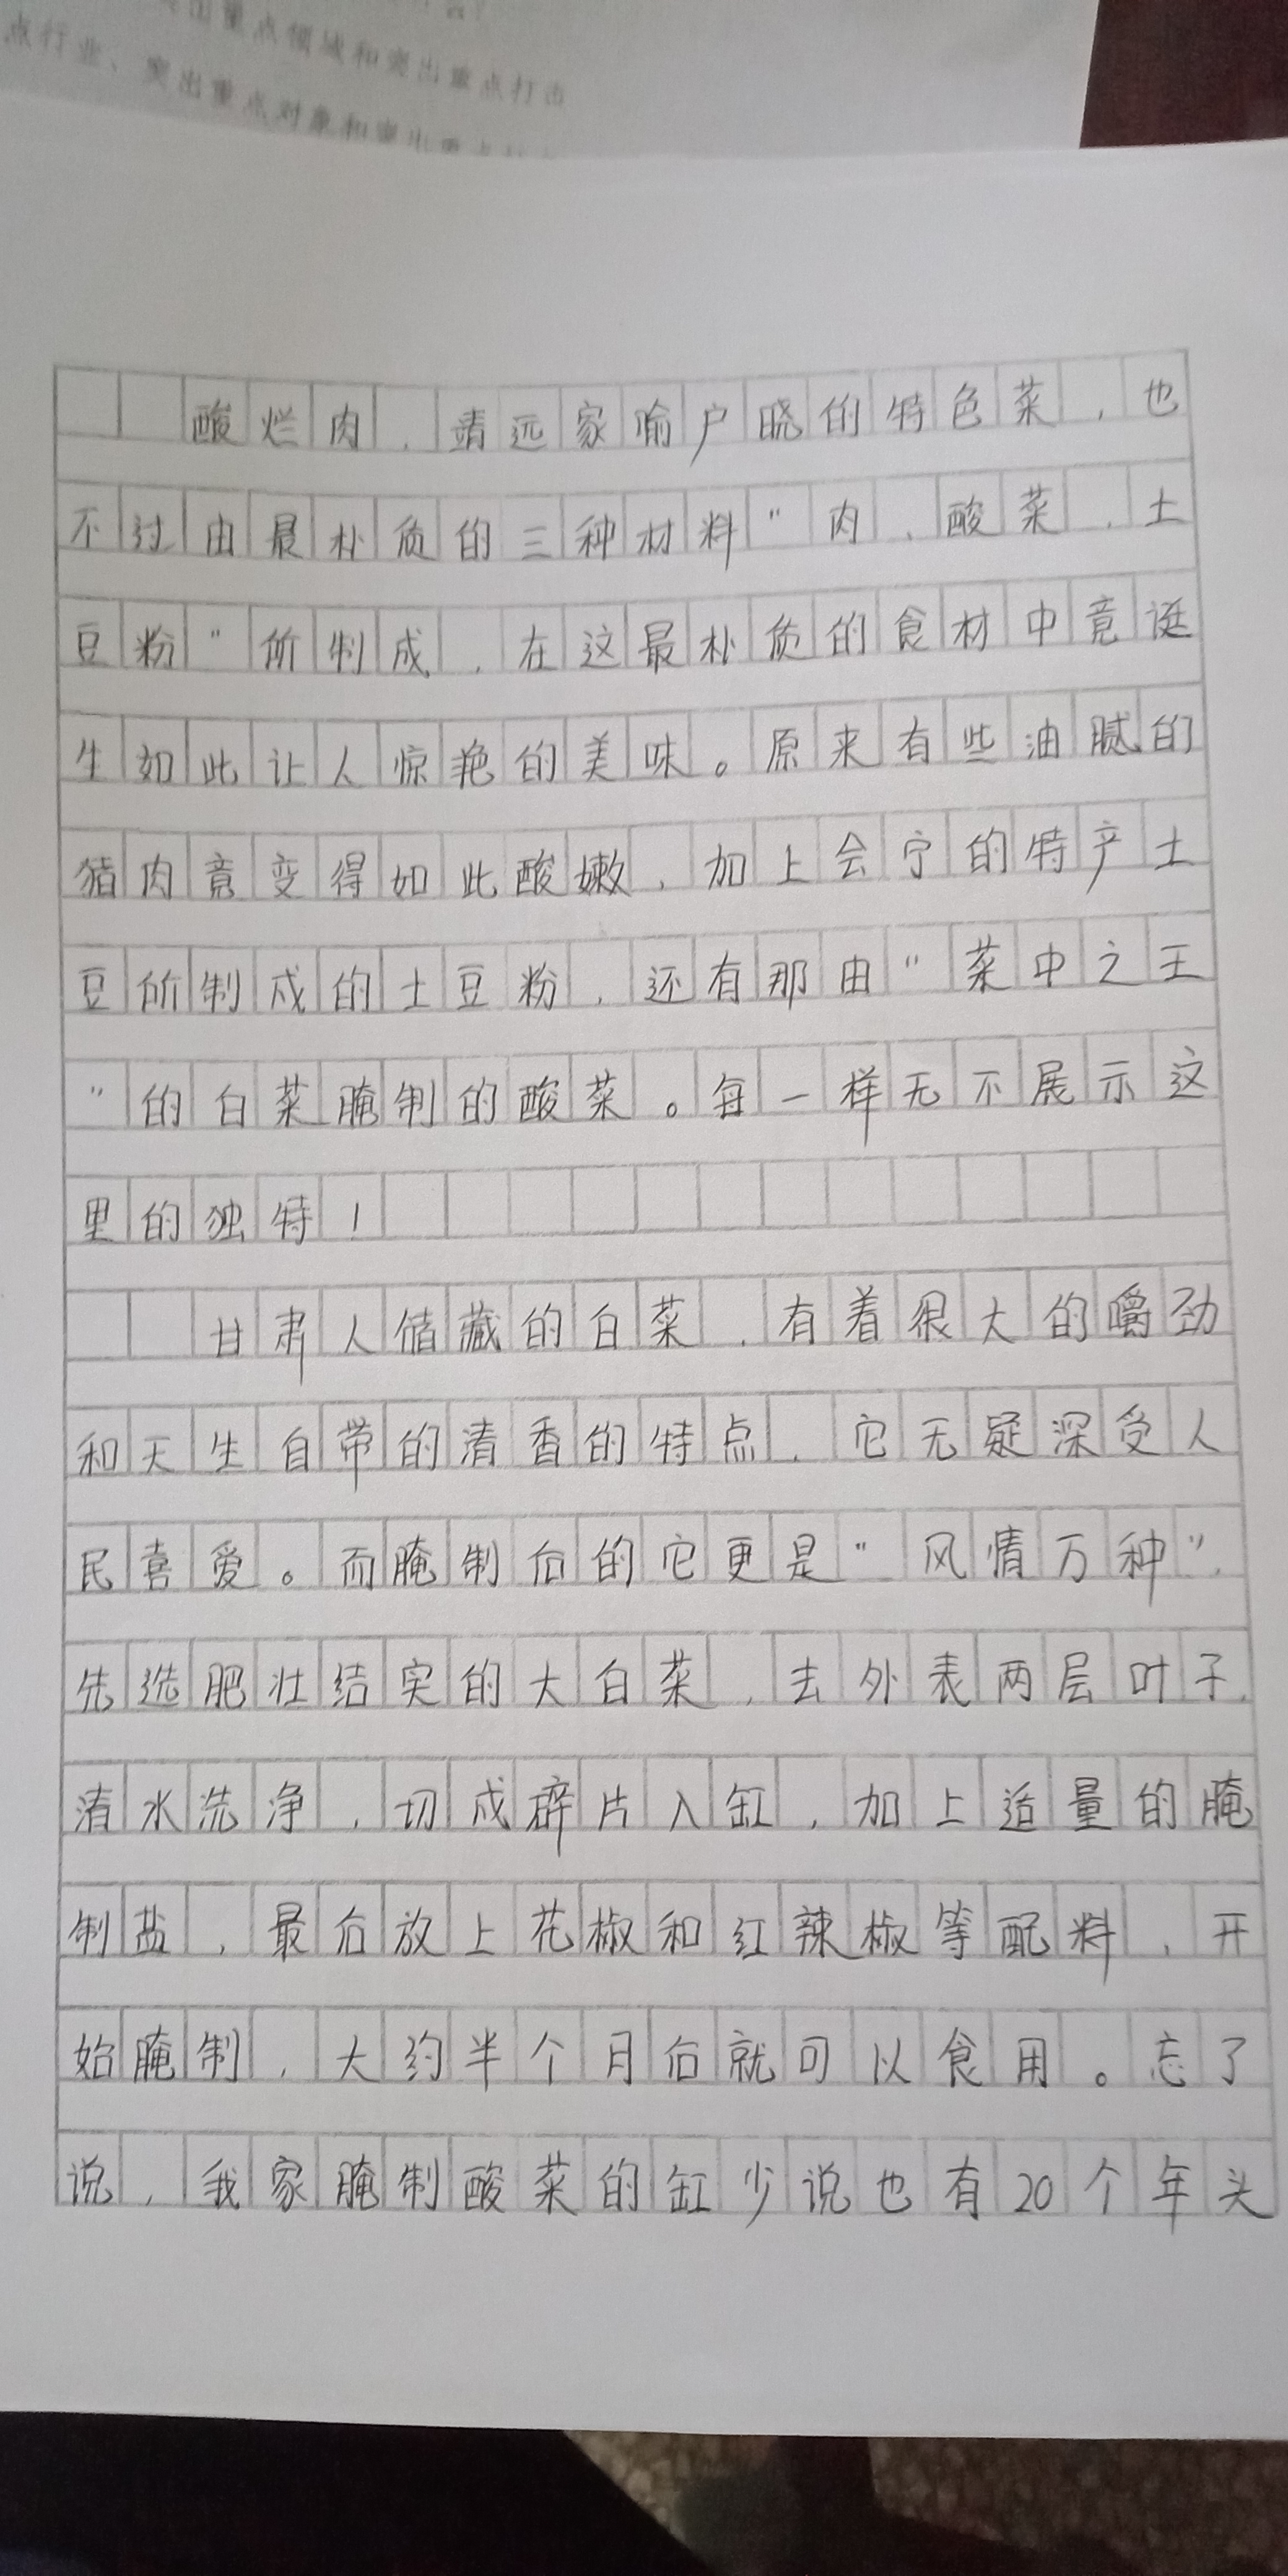 出重点领域和突出重点行
点行业、突出重点对象和突出重点
酸烂肉，靖远家喻户晓的特色菜，也
不过由最朴质的三种材料"肉、酸菜、土
豆粉"所制成，在这最朴质的食材中竟诞
生如此让人惊艳的美味。原来有些油腻的
猪肉竟变得如此酸嫩，加上会宁的特产土
豆所制成的土豆粉，还有那由"菜中之王
"的白菜腌制的酸菜。每一样无不展示这
里的独特！
甘肃人储藏的白菜，有着很大的嚼劲
和天生自带的清香的特点，它无疑深受人
民喜爱。而腌制后的它更是"风情万种"，
先选肥壮结实的大白菜，去外表两层叶子，
清水洗净，切成碎片入缸，加上适量的腌
制盐，最后放上花椒和红辣椒等配料，开
始腌制，大约半个月后就可以食用。忘了
说，我家腌制酸菜的缸少说也有20个年头